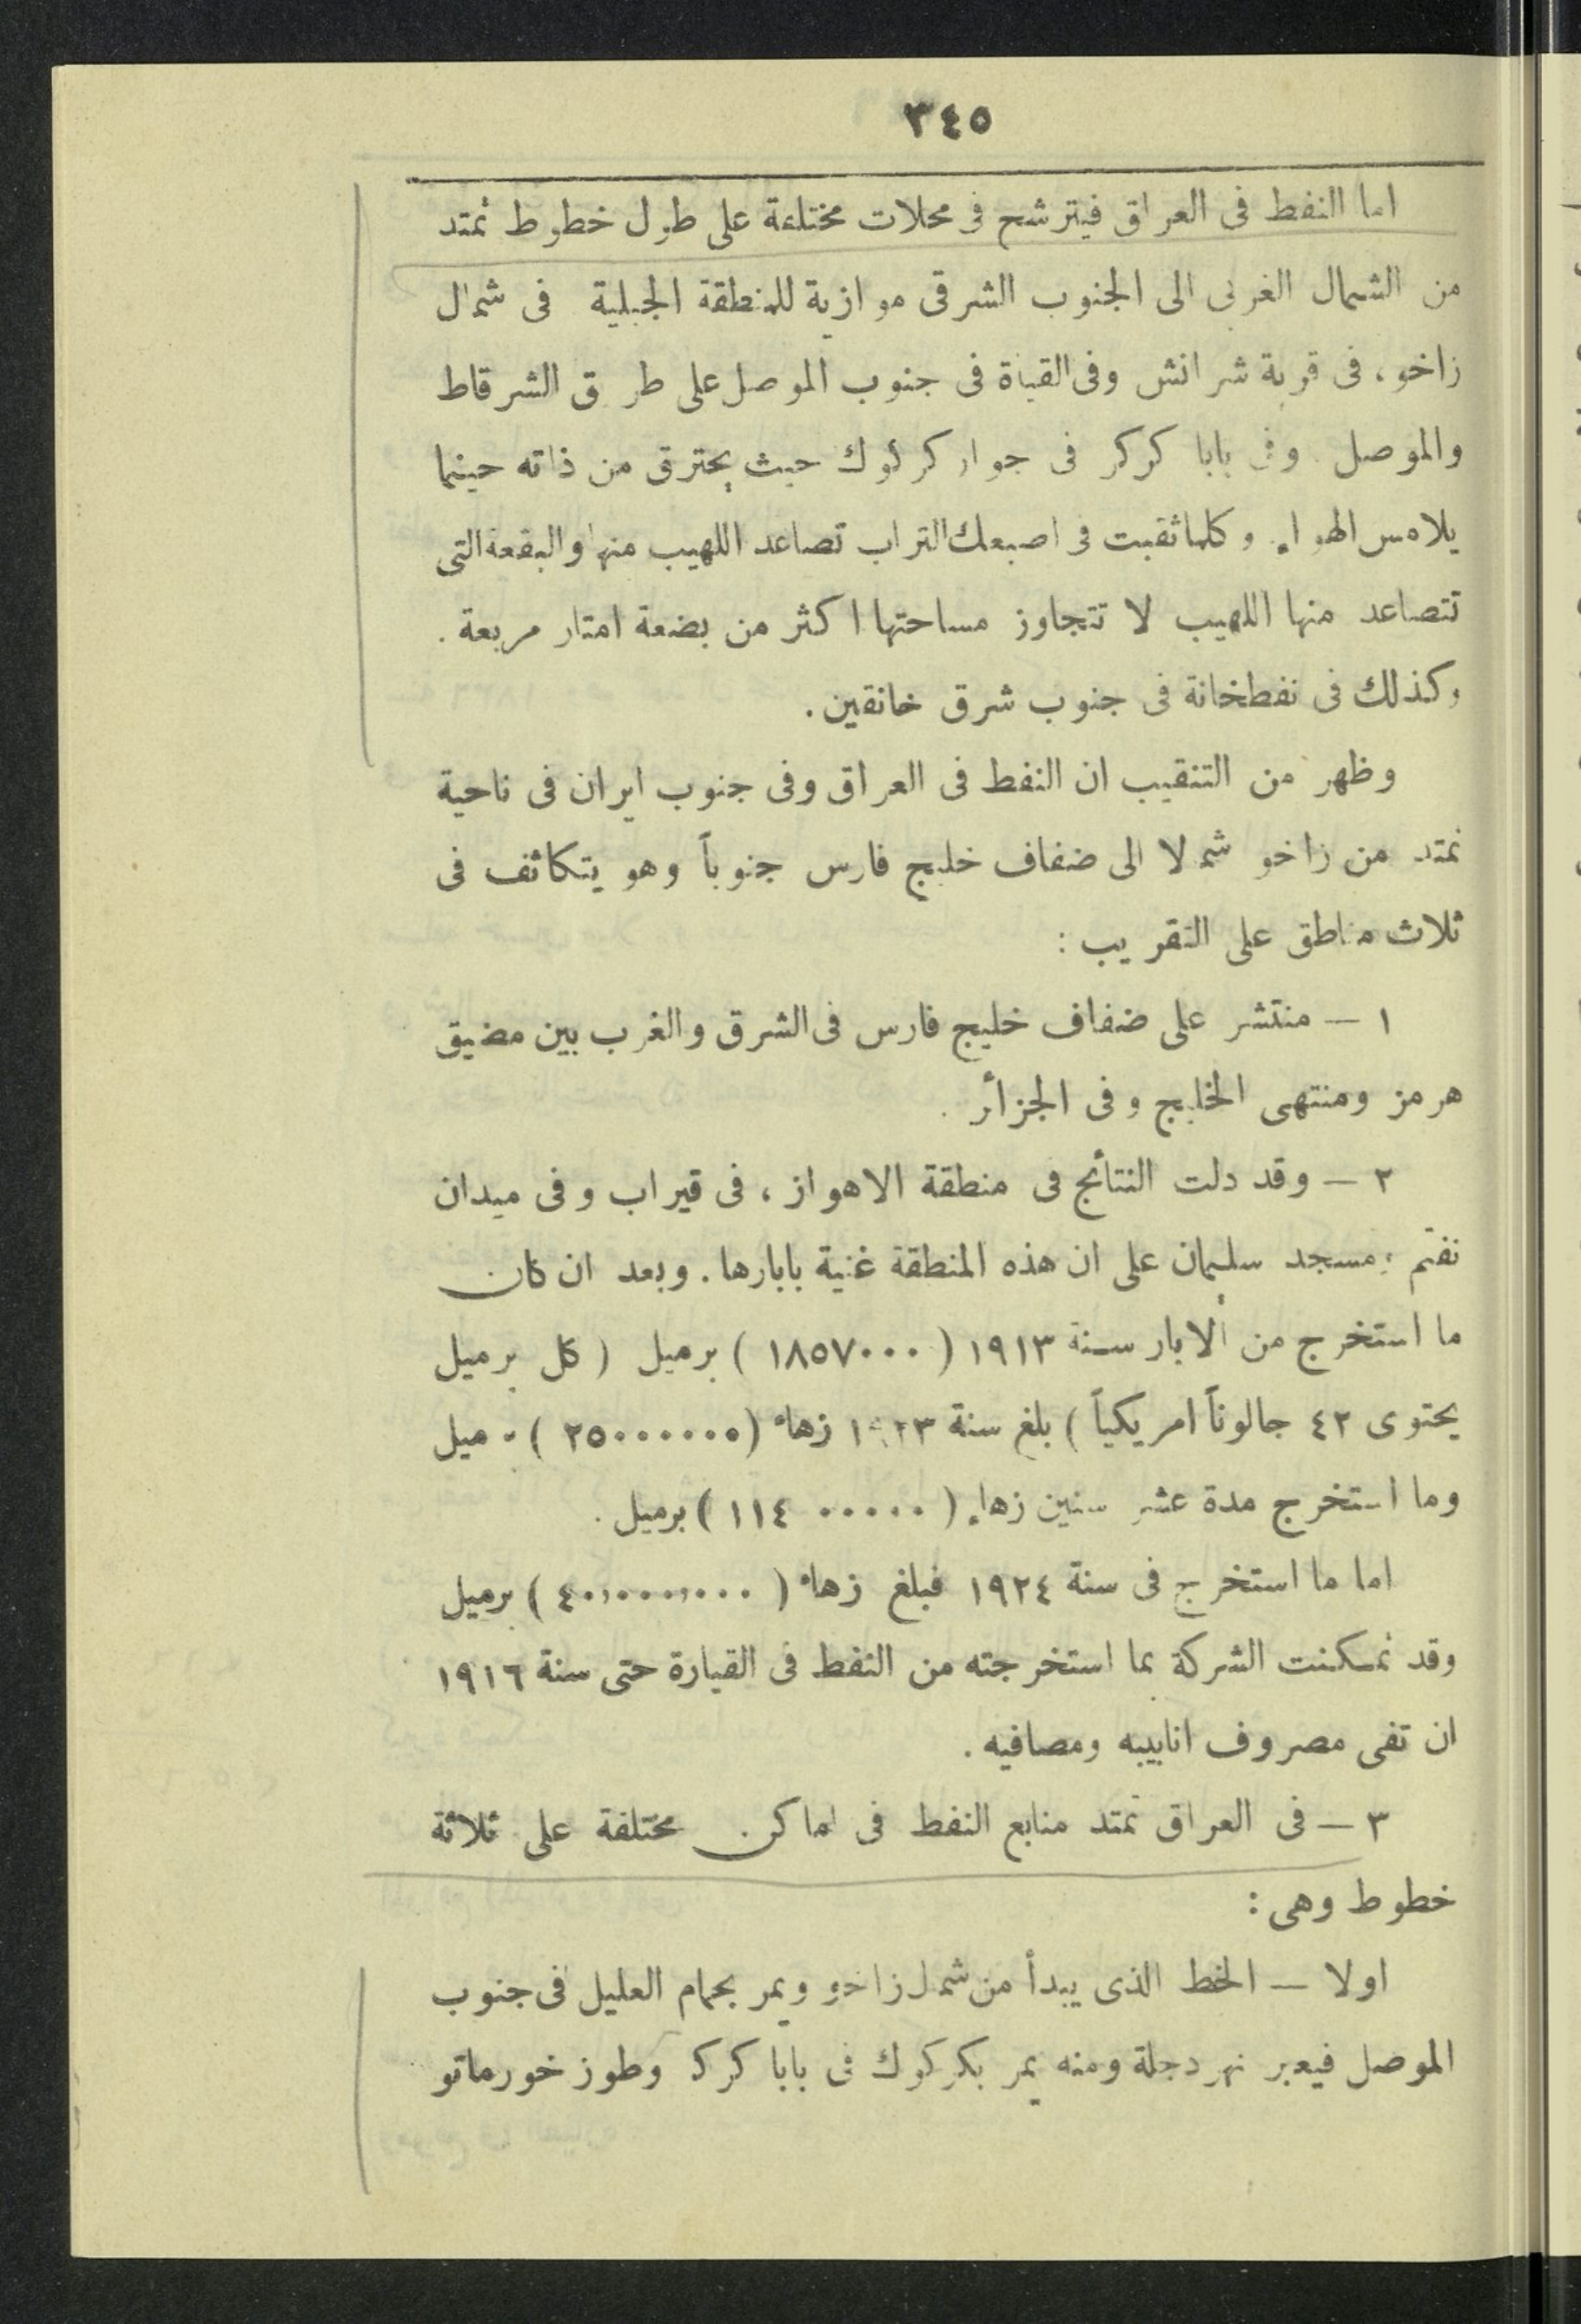 ٣٤٥
اما النفط فى العراق فيترشح فى محلات مختلفة على طول خطوط تمتد
من الشمال الغربى الى الجنوب الشرقى موازية للمنطقة الجبلية فى شمال
زاخو، فى قرية شرانش وفى القيارة فى جنوب الموصل على طريق الشرقاط
والموصل وفى بابا كركر فى جوار كركوك حيث يحترق من ذاته حينما
يلامس الهواء وكلما ثقبت فى اصبعك التراب تصاعد اللهيب منها والبقعة التى
تتصاعد منها اللهيب لا تتجاوز مساحتها اكثر من بضعة امتار مربعة .
وكذلك فى نفطخانة فى جنوب شرق خانقين .
وظهر من التنقيب ان النفط فى العراق وفى جنوب ايران فى ناحية
تمتد من زاخو شمالا الى ضفاف خليج فارس جنوباً وهو يتكاثف فى
ثلاث مناطق على التقريب :
١ — منتشر على ضفاف خليج فارس فى الشرق والغرب بين مضيق
هرمز ومنتهى الخليج وفى الجزأر .
٢ — وقد دلت النتأئج فى منطقة الاهواز ، فى قيراب وفى ميدان
نفتم ، مسجد سليمان على ان هذه المنطقة غنية بابارها . وبعد ان كان
ما استخرج من ألابار سنة ١٩١٣ ( ١٨٥٧٠٠٠ ) برميل ( كل برميل
يحتوى ٤٢ جالوناً امريكياً ) بلغ سنة ١٩٢٣ زهاء (٢٥٠٠٠٠٠٠ ) برميل
وما استخرج مدة عشر سنين زهاء ( ١١٤٠٠٠٠٠ ) برميل .
اما ما استخرج فى سنة ١٩٢٤ فبلغ زهاء ( ٤٠،٠٠٠،٠٠٠ ) برميل
وقد تمكنت الشركة بما استخرجته من النفط فى القيارة حتى سنة ١٩١٦
ان تفى مصروف انابيبه ومصافيه .
٣ — فى العراق تمتد منابع النفط فى اماكن مختلفة على ثلاثة
خطوط وهى :
اولا — الخط الذى يبدأ من شمال زاخو ويمر بحمام العليل فى جنوب
الموصل فيعبر نهر دجلة ومنه يمر بكركوك فى بابا كرك وطوز خورماتو